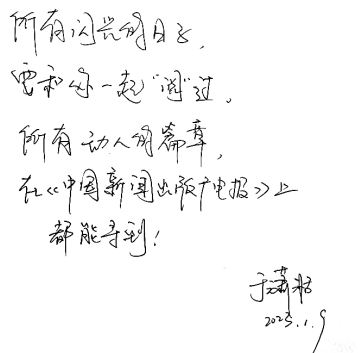 所有闪光的日子，
要和你一起“阅”过，
所有动人的篇章，
在《中国新闻出版广电报》上
都能寻到！
于潇湉
2025.1.9